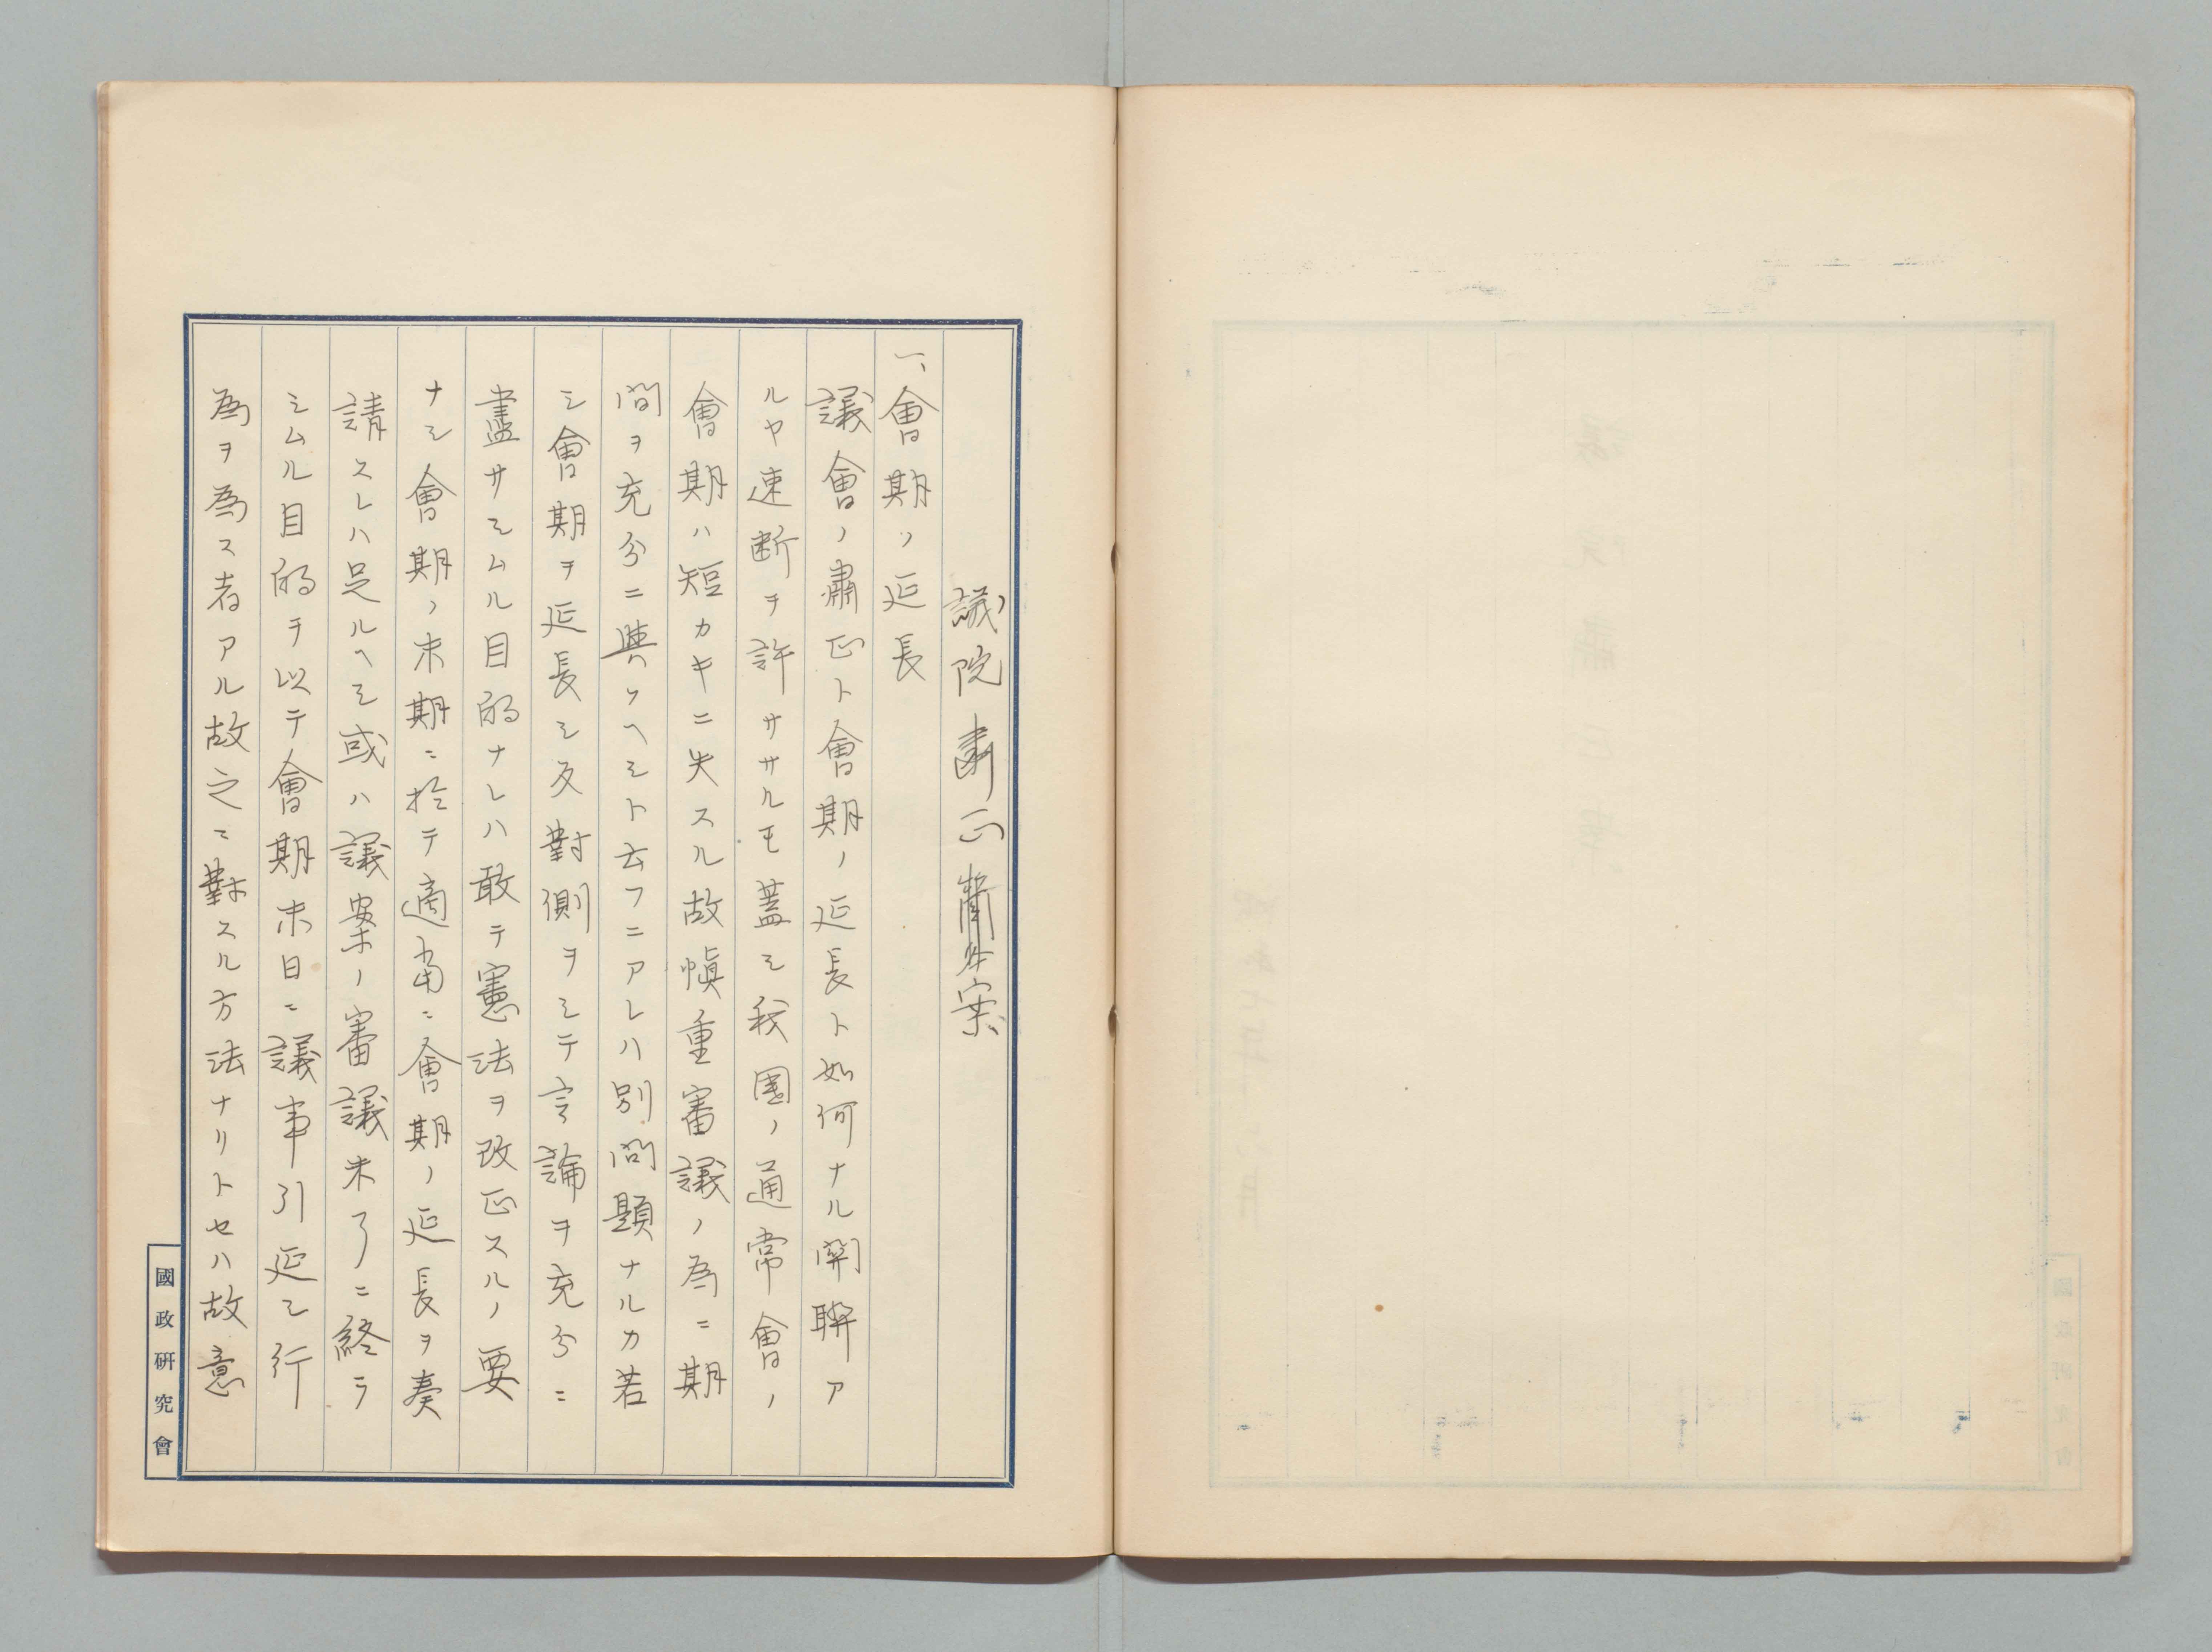 議院肅正案
一、會期ノ延長
議會ノ肅正ト會期ノ延長ト如何ナル関聯ア
ルヤ速断ヲ許ササルモ蓋シ我國ノ通常會ノ
會期ハ短カキニ失スル故愼重審議ノ為ニ期
間ヲ充分ニ與フヘシト云フニアレハ別問題ナルカ若
シ會期ヲ延長シ反對側ヲシテ言論ヲ充分ニ
盡サシムル目的ナレハ敢テ憲法ヲ改正スルノ要
ナシ會期ノ末期ニ於テ適當ニ會期ノ延長ヲ奏
請スレハ足ルヘシ或ハ議案ノ審議未了ニ終ラ
シムル目的ヲ以テ會期末日ニ議事引延シ行
為ヲ為ス者アル故之ニ對スル方法ナリトセハ故意
國政研究會